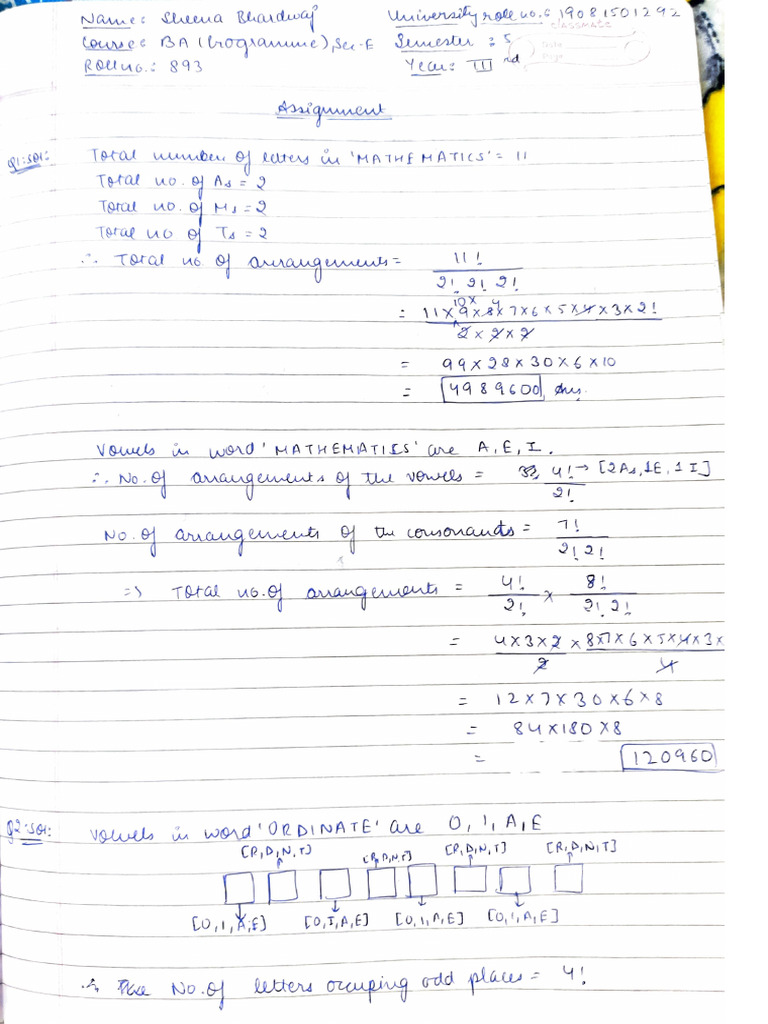 Name: Sheena Bhardwaj University role no. 6 19081501292
classmate
Course: BA (Programme), Sec-E Semester: 5
Date
Page
Roll no.: 893 Year: IIIrd
Assignment
Q1:Sol: Total number of letters in 'MATHEMATICS' = 11
Total no. of As = 2
Total no. of Ms = 2
Total no of Ts = 2
∴ Total no. of arrangements = 11! / 2! 2! 2!
= 11 × 10 × 9 × 8 × 7 × 6 × 5 × 4 × 3 × 2! / 2 × 2 × 2
= 99 × 28 × 30 × 6 × 10
= 4989600 Ans.
Vowels in word 'MATHEMATICS' are A, E, I.
∴ No. of arrangements of the vowels = 4! / 2! → [2As, 1E, 1I]
No. of arrangements of the consonants = 7! / 2! 2!
⇒ Total no. of arrangements = 4! / 2! × 8! / 2! 2!
= 4 × 3 × 2 / 2 × 8 × 7 × 6 × 5 × 4 × 3 × / 4
= 12 × 7 × 30 × 6 × 8
= 84 × 180 × 8
= 120960
Q2:Sol: Vowels in word 'ORDINATE' are O, I, A, E
[R, D, N, T] [R, D, N, T] [R, D, N, T] [R, D, N, T]
[O, I, A, E] [O, I, A, E] [O, I, A, E] [O, I, A, E]
∴ The No. of letters occuping odd places = 4!